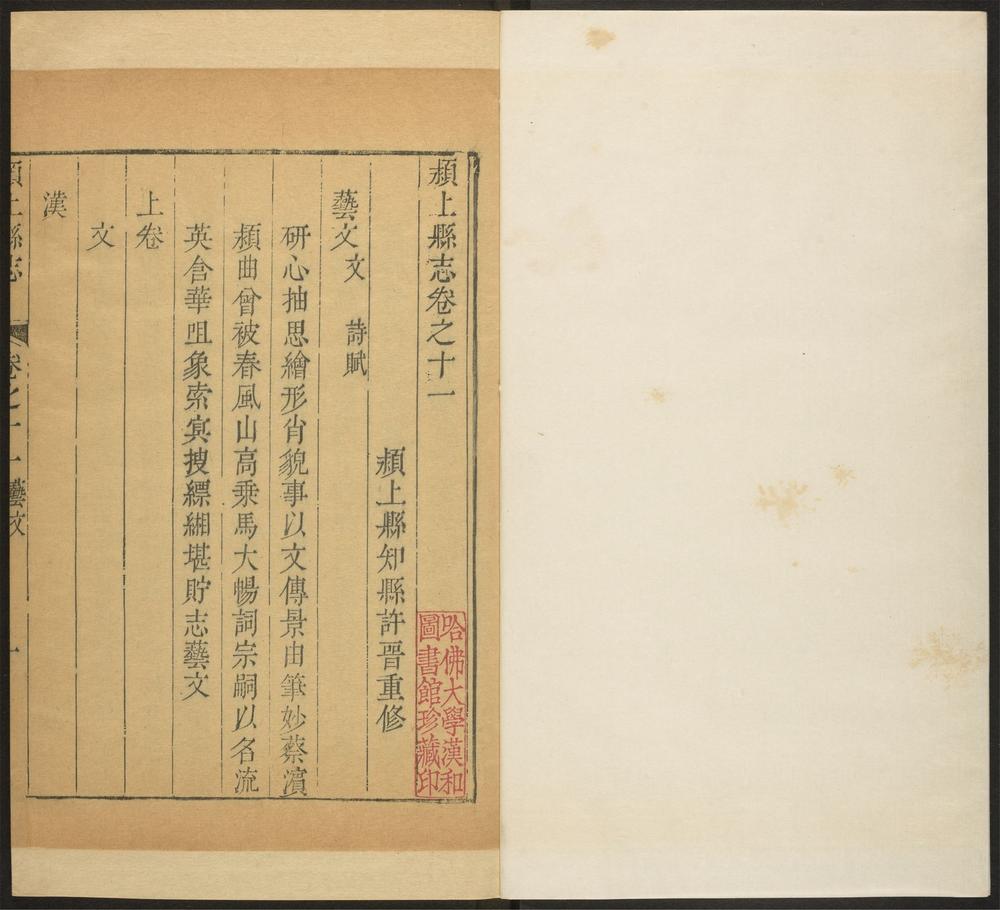 潁上縣志卷之十一
潁上縣知縣許晉重修
藝文文 詩賦
研心抽思繪形肖貌事以文傳景由筆妙蔡濱
潁曲曾被春風山高乗馬大暢詞宗嗣以名流
英含華咀象索寘捜縹緗堪貯志藝文
上卷
文
漢
潁上縣志 卷之十一藝文 一
哈佛大學漢和
圖書館珍藏印